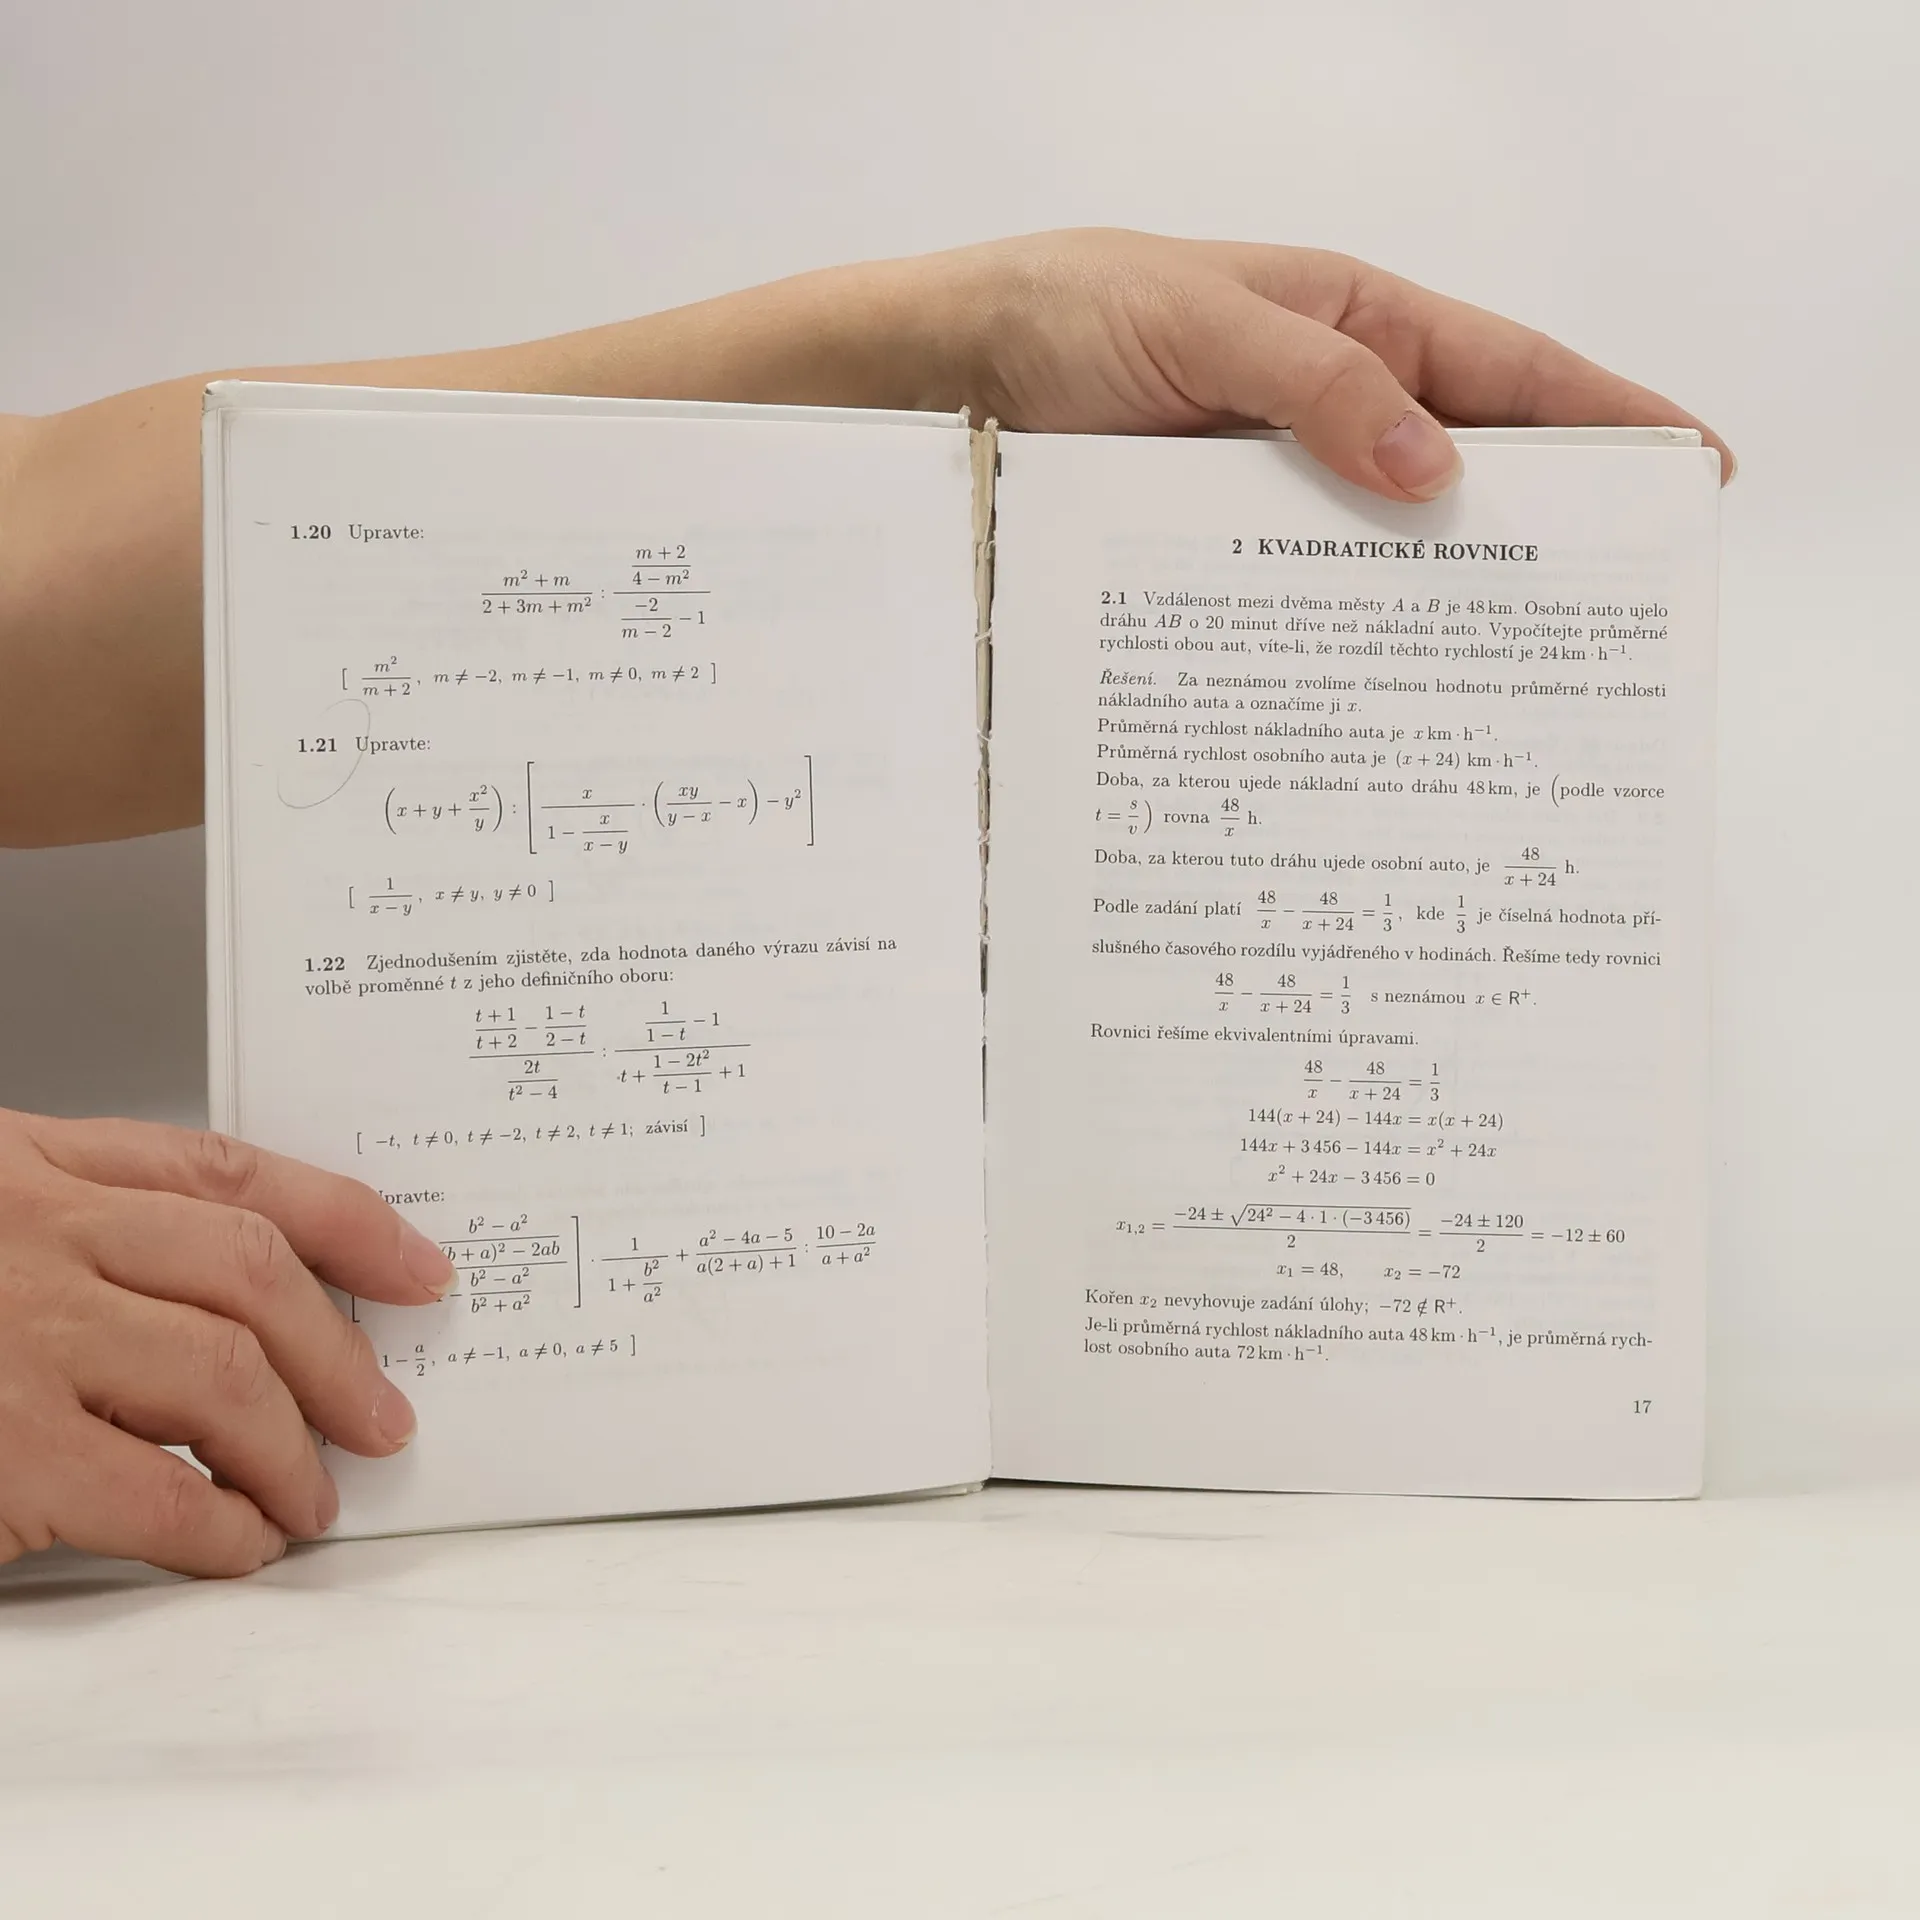 1.20 Upravte:
\frac{m^2 + m}{2 + 3m + m^2} : \frac{\frac{m + 2}{4 - m^2}}{\frac{-2}{m - 2} - 1}
[ \frac{m^2}{m + 2}, m ≠ −2, m ≠ −1, m ≠ 0, m ≠ 2 ]
1.21 Upravte:
\left(x + y + \frac{x^2}{y}\right) : \left[ \frac{x}{1 - \frac{x}{x - y}} \cdot \left(\frac{xy}{y - x} - x\right) - y^2 \right]
[ \frac{1}{x - y}, x ≠ y, y ≠ 0 ]
1.22 Zjednodušením zjistěte, zda hodnota daného výrazu závisí na
volbě proměnné t z jeho definičního oboru:
\frac{\frac{t + 1}{t + 2} - \frac{1 - t}{2 - t}}{\frac{2t}{t^2 - 4}} : \frac{\frac{1}{1 - t} - 1}{t + \frac{1 - 2t^2}{t - 1} + 1}
[ −t, t ≠ 0, t ≠ −2, t ≠ 2, t ≠ 1; závisí ]
pravte:
\frac{\frac{b^2 - a^2}{(b + a)^2 - 2ab}}{- \frac{b^2 - a^2}{b^2 + a^2}} ] \cdot \frac{1}{1 + \frac{b^2}{a^2}} + \frac{a^2 - 4a - 5}{a(2 + a) + 1} : \frac{10 - 2a}{a + a^2}
1 − \frac{a}{2}, a ≠ −1, a ≠ 0, a ≠ 5 ]
2 KVADRATICKÉ ROVNICE
2.1 Vzdálenost mezi dvěma městy A a B je 48 km. Osobní auto ujelo
dráhu AB o 20 minut dříve než nákladní auto. Vypočítejte průměrné
rychlosti obou aut, víte-li, že rozdíl těchto rychlostí je 24 km · h⁻¹.
Řešení. Za neznámou zvolíme číselnou hodnotu průměrné rychlosti
nákladního auta a označíme ji x.
Průměrná rychlost nákladního auta je x km · h⁻¹.
Průměrná rychlost osobního auta je (x + 24) km · h⁻¹.
Doba, za kterou ujede nákladní auto dráhu 48 km, je (podle vzorce
t = \frac{s}{v}) rovna \frac{48}{x} h.
Doba, za kterou tuto dráhu ujede osobní auto, je \frac{48}{x + 24} h.
Podle zadání platí \frac{48}{x} − \frac{48}{x + 24} = \frac{1}{3}, kde \frac{1}{3} je číselná hodnota pří-
slušného časového rozdílu vyjádřeného v hodinách. Řešíme tedy rovnici
\frac{48}{x} − \frac{48}{x + 24} = \frac{1}{3} s neznámou x ∈ R⁺.
Rovnici řešíme ekvivalentními úpravami.
\frac{48}{x} − \frac{48}{x + 24} = \frac{1}{3}
144(x + 24) − 144x = x(x + 24)
144x + 3 456 − 144x = x² + 24x
x² + 24x − 3 456 = 0
x_{1,2} = \frac{−24 ± \sqrt{24² − 4 · 1 · (−3 456)}}{2} = \frac{−24 ± 120}{2} = −12 ± 60
x₁ = 48, x₂ = −72
Kořen x₂ nevyhovuje zadání úlohy; −72 ∉ R⁺.
Je-li průměrná rychlost nákladního auta 48 km · h⁻¹, je průměrná rych-
lost osobního auta 72 km · h⁻¹.
17